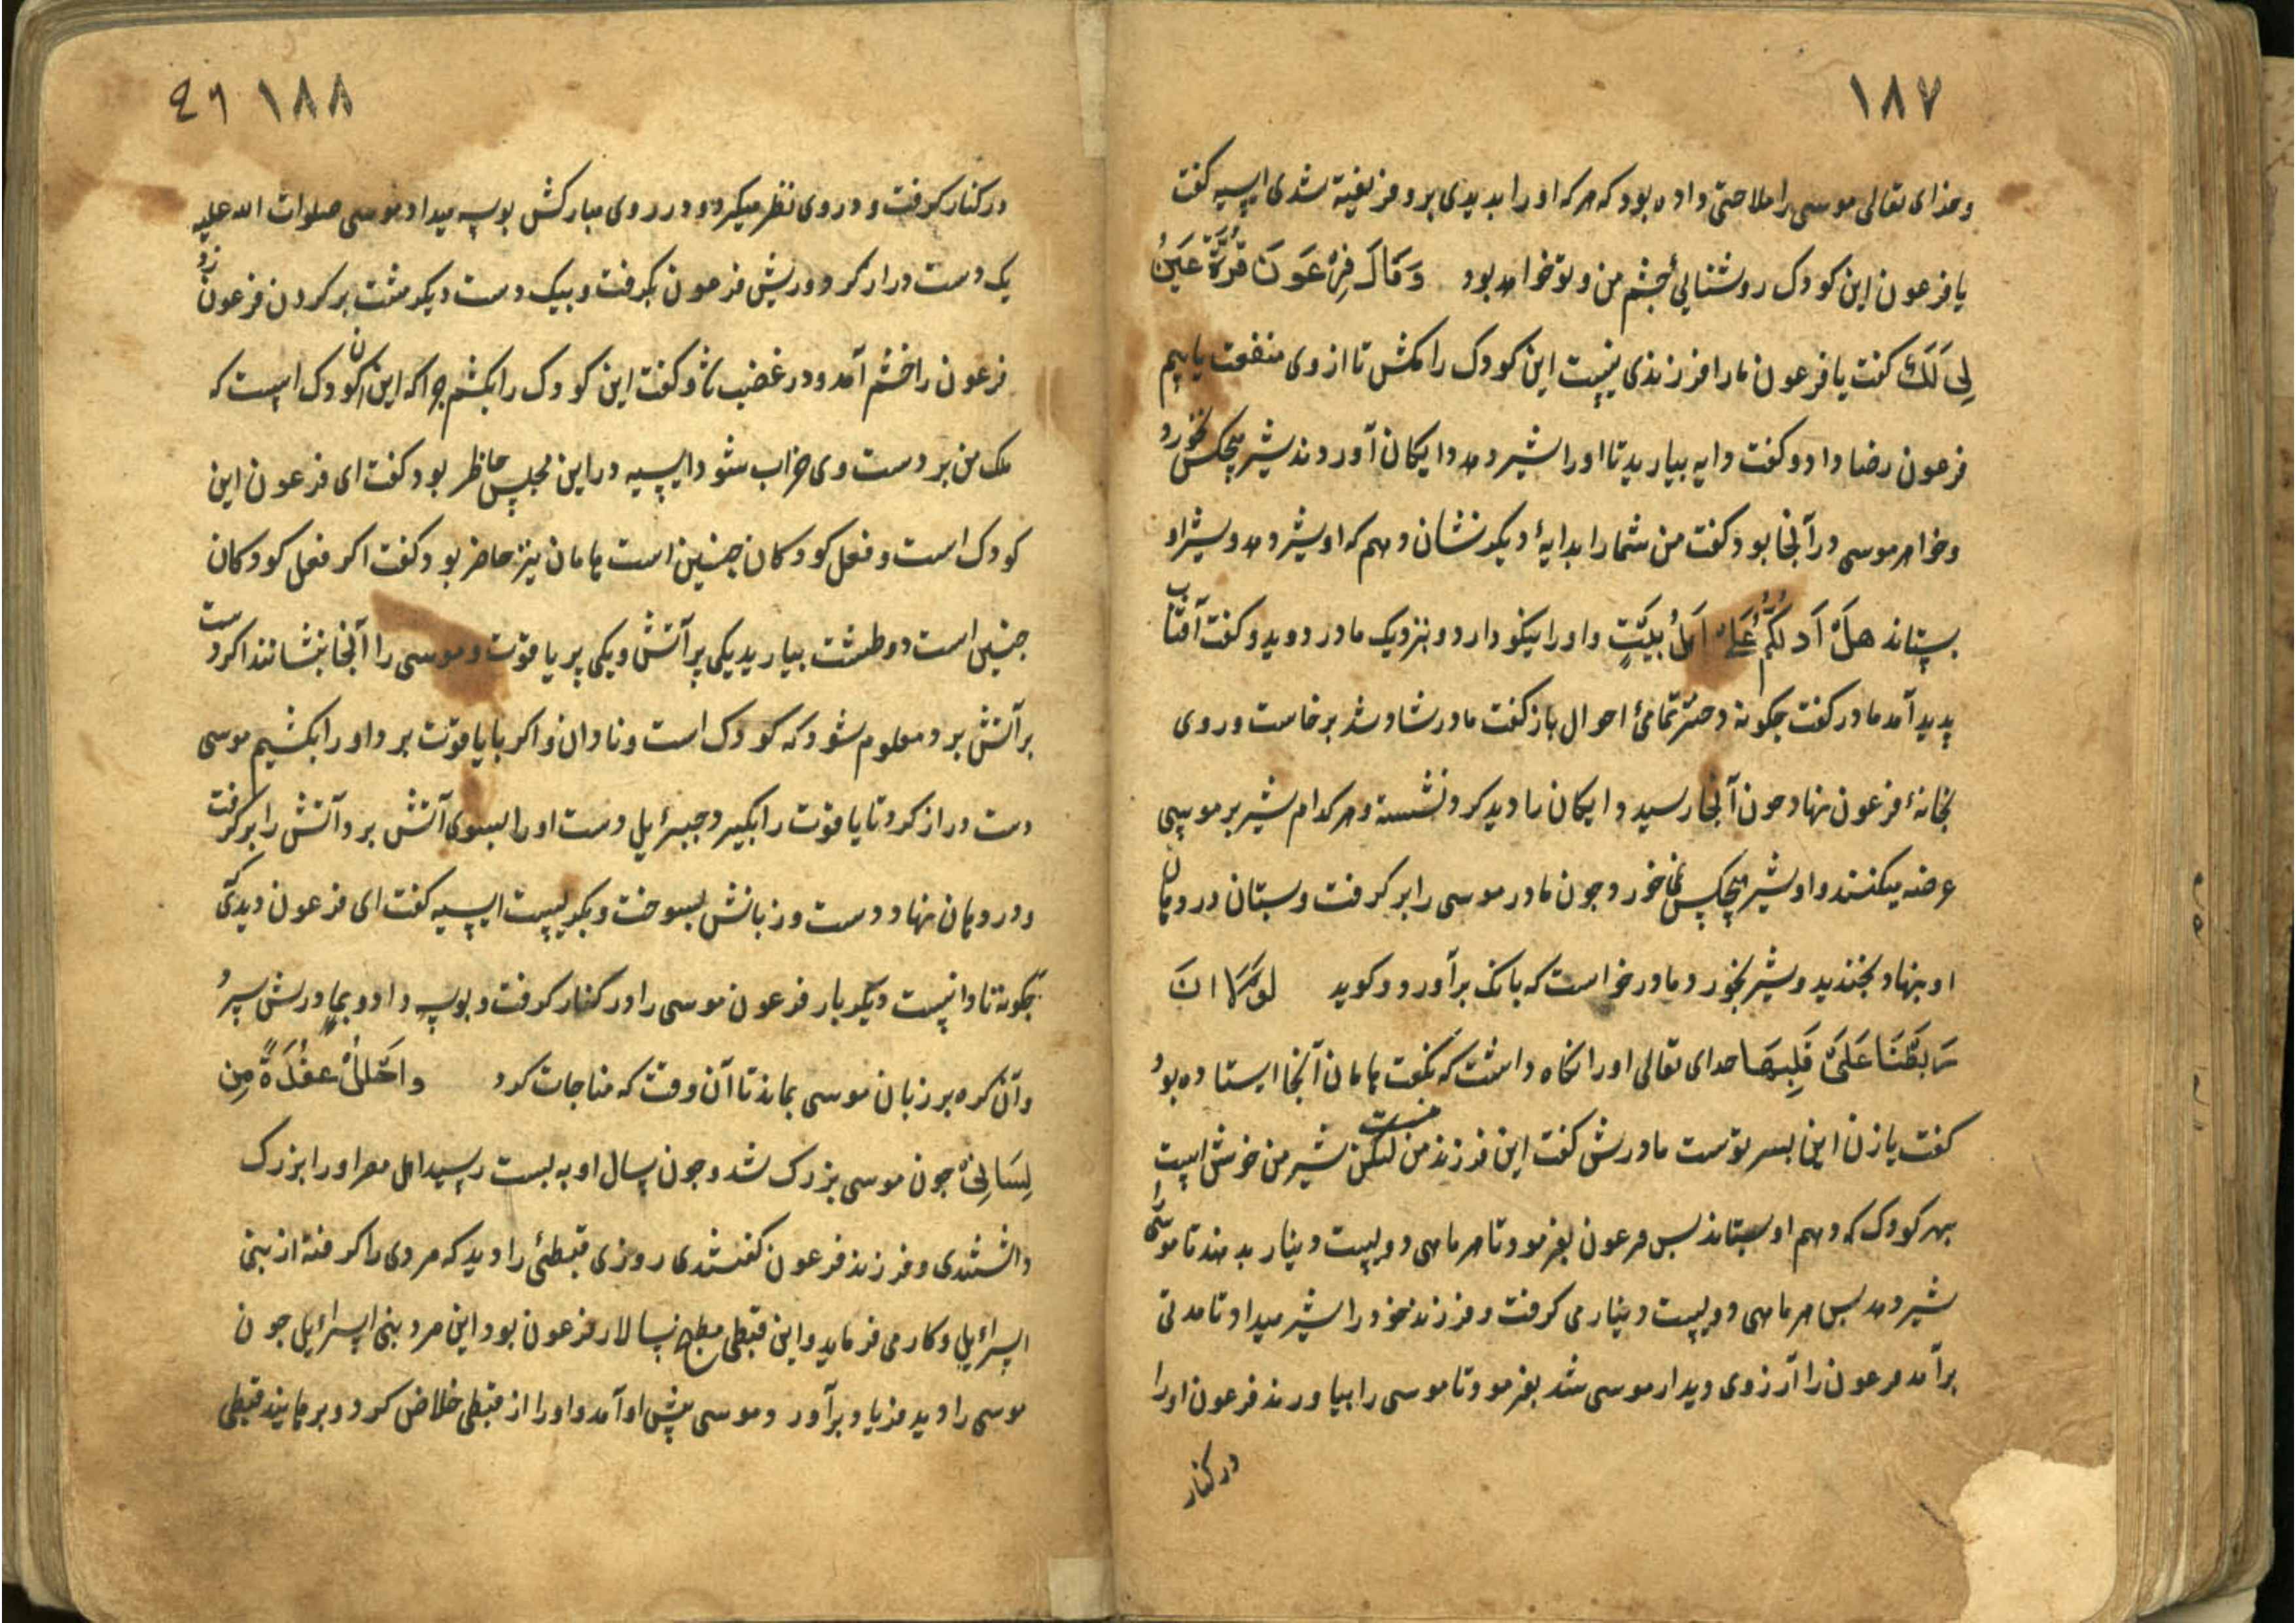 ۱۸۷
وخدای تعالی موسی را ملاحتی داده بود که هرکه اورا بدیدی برو فریفته شدی ایسیه کفت
یا فرعون این کودک روشنائی جشم من وتو خواهد بود وَقَالَ فِرْعَوْنَ قُرَّةُ عَيْنُ
لِی لَكَ کفت یا فرعون مارا فرزندی نیست این کودک را مکش تا ازوی منفعت یابیم
فرعون رضا داد وکفت دایه بیارید تا اورا شیر دهد دایکان آوردند شیر هیچکس نخورد
وخواهر موسی در آنجا بود کفت من شمارا بدایهٔ دیکر نشان دهم که او شیر دهد وشیر او
بستاند هَلْ اَدُلُّكُمْ عَلَىٰ اَهْلُ بَيْتٍ واورا نیکو دارد وبنزدیک مادر دوید وکفت آفتاب
پدید آمد مادر کفت جکونه دختر تمامئ احوال باز کفت مادر شاد شد برخاست وروی
بخانهٔ فرعون نهاد جون آنجا رسید دایکان را دید کرد نشسته وهرکدام شیر بر موسی
عرضه میکنند واو شیر هیچکس نمی خورد جون مادر موسی را برکرفت وبستان در دهان
او بنهاد بخندید وشیر بخورد مادر خواست که بانک برآورد وکوید لَوْلَا انَ
رَبَطْنَا عَلَیٰ قَلْبِهَا خدای تعالی اورا نکاه داشت که نکفت هامان آنجا ایستاده بود
کفت یا زن این بسر توست مادرش کفت این فرزند من نیست لیکن شیر من خوش است
بهر کودک که دهم او بستاند بس فرعون بفرمود تا هر ماهی دویست دینار بدهند تا موسی را
شیر دهد بس هر ماهی دویست دینار می کرفت وفرزند خود را شیر میداد تا مدتی
برآمد فرعون را آرزوی دیدار موسی شد بفرمود تا موسی را بیاورند فرعون اورا
در کنار
۱۸۸
در کنار کرفت ودر وی نظر میکرد ودر روی مبارکش بوسه میداد موسی صلوات الله علیه
یک دست دراز کرد وریش فرعون بکرفت وبیک دست دیکر مشت بر کردن فرعون زد
فرعون را خشم آمد ودر غضب شد وکفت این کودک را بکشم جراکه این آن کودک است که
ملک من بر دست وی خراب شود ایسیه دراین مجلس حاظر بود کفت ای فرعون این
کودک است وفعل کودکان جنین است هامان نیز حاضر بود کفت اکر فعل کودکان
جنین است دو طشت بیارید یکی پر آتش ویکی پر یاقوت وموسی را آنجا بنشانند اکر دست
بر آتش برد معلوم شود که کودک است ونادان واکر با یاقوت برد اورا بکشیم موسی
دست دراز کرد تا یاقوت را بکیرد جبرئیل دست اورا بسوی آتش برد آتش را برکرفت
ودر دهان نهاد دست وزبانش بسوخت وبکریست ایسیه کفت ای فرعون دیدی که
جکونه نادانیست دیکر بار فرعون موسی را در کنار کرفت وبوسه داد وبمادرش سپرد
وآن کره بر زبان موسی بماند تا آن وقت که مناجات کرد وَاحْلُلْ عُقْدَةً مِن
لِسَانِیْ جون موسی بزرک شد وجون سال او به بست رسید اهل مصر اورا بزرک
داشتندی وفرزند فرعون کفتندی روزی قبطئ را دید که مردی را کرفته از بنی
اسرائیل وکار می فرماید واین قبطی مطبخ سالار فرعون بود این مرد بنی اسرائیل جون
موسی را دید فریاد برآورد وموسی پیش او آمد واورا از قبطی خلاص کرد